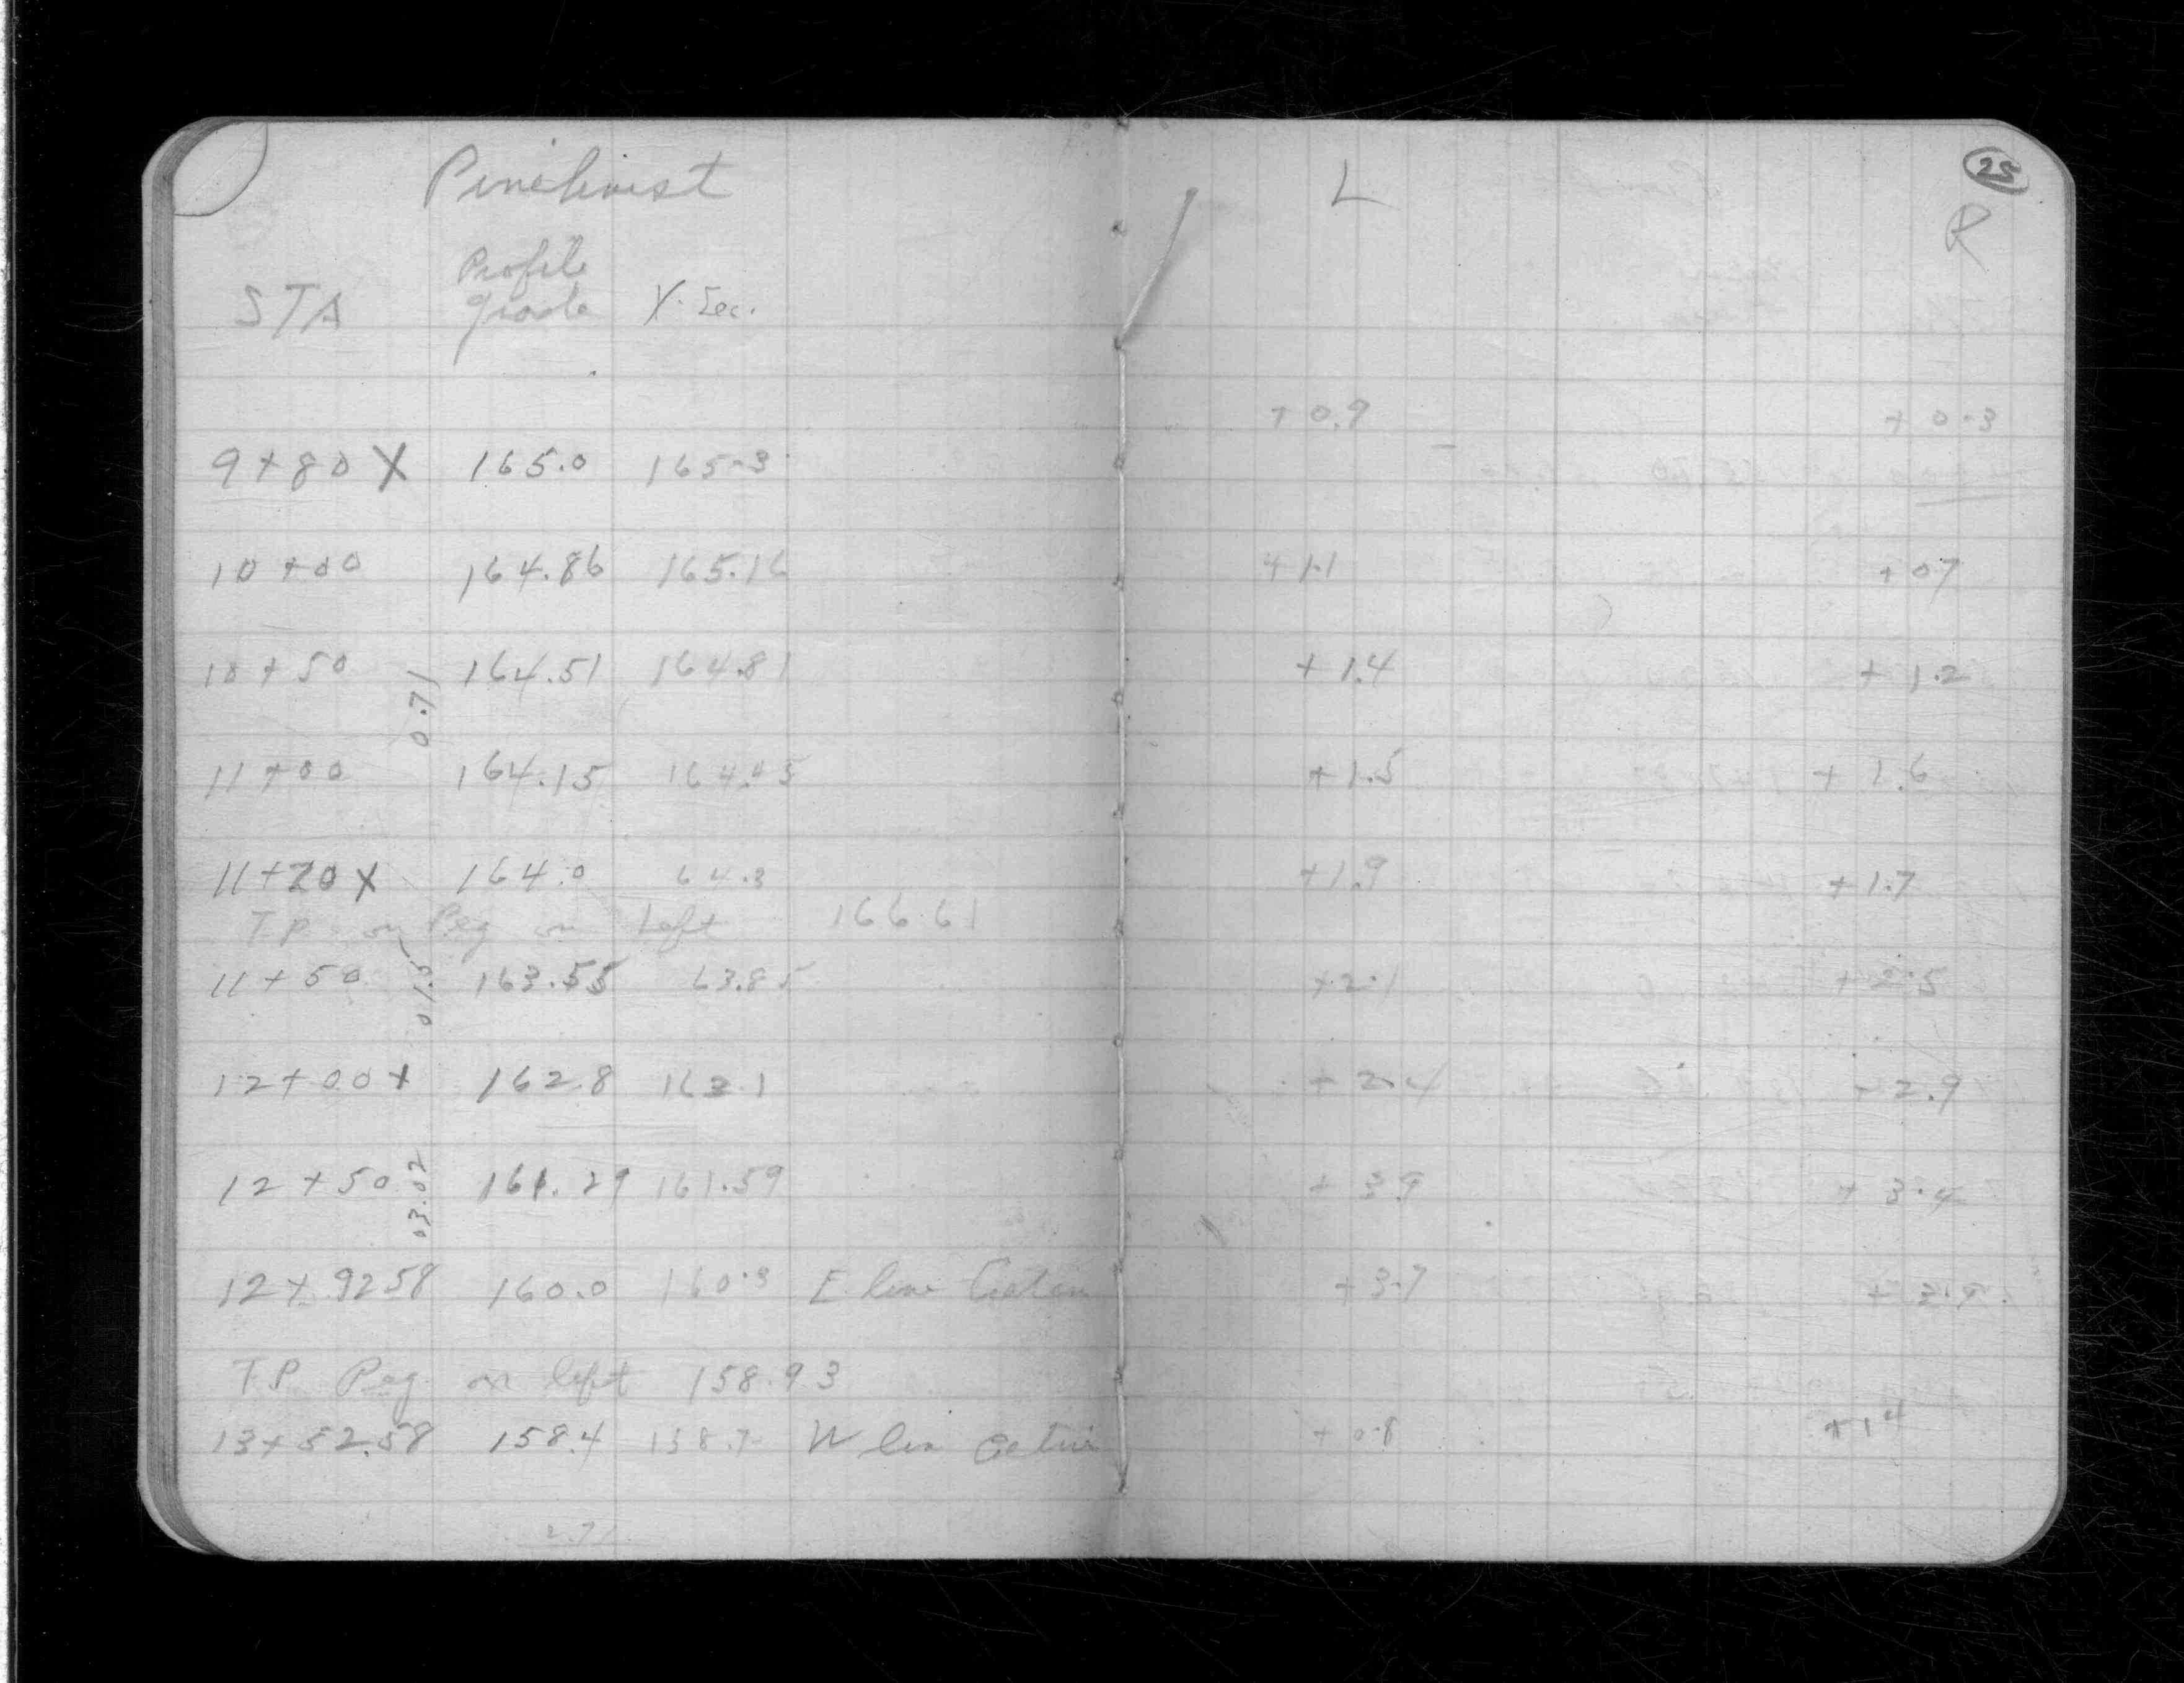 25
L R
Profile
STA grade X-Sec.
+0.9 +0.3
9+80 X 165.0 165.3
10+00 164.86 165.16 +1.1 +0.7
10+50 164.51 164.81 +1.4 +1.2
0.71
11+00 164.15 164.45 +1.5 +1.6
11+20 X 164.0 64.3 +1.9 +1.7
T.P. on Peg on Left 166.61
11+50 163.55 63.85 +2.1 +2.5
01.5
12+00 X 162.8 163.1 +2.4 +2.9
12+50 161.29 161.59 +3.9 +3.4
03.02
12+92.58 160.0 160.3 E line +3.7
T.P. Peg on left 158.93
13+52.58 158.4 158.7 W lin +0.8 +1.4
2.71